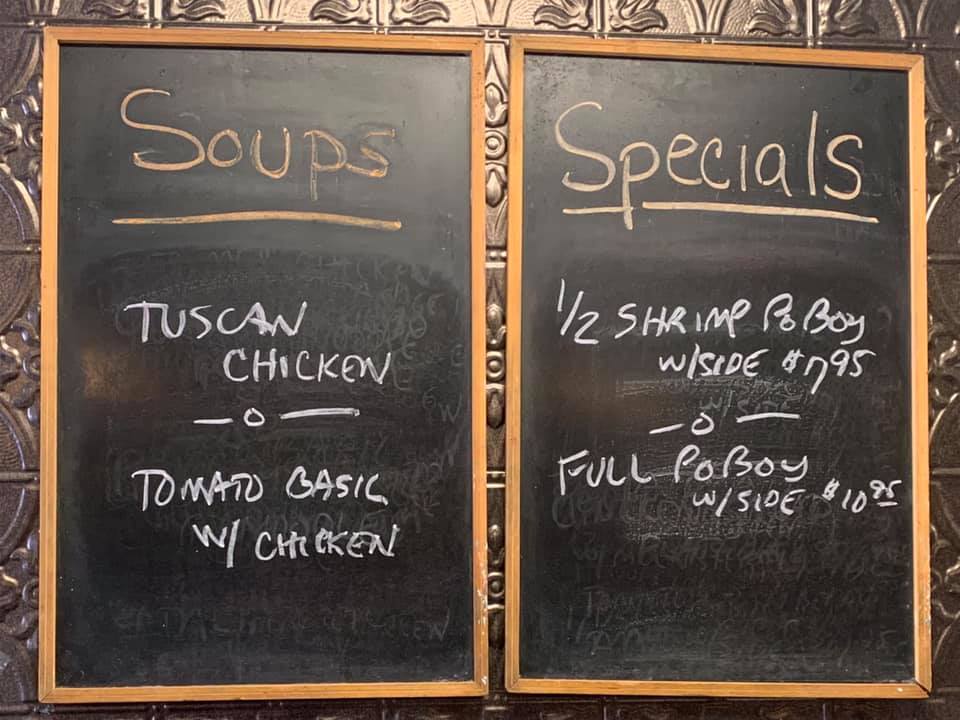 Soups
TUSCAN
CHICKEN
TOMATO BASIL
W/ CHICKEN
Specials
1/2 SHRIMP PoBoy
W/SIDE $7.95
FULL PoBoy
W/SIDE $10.95